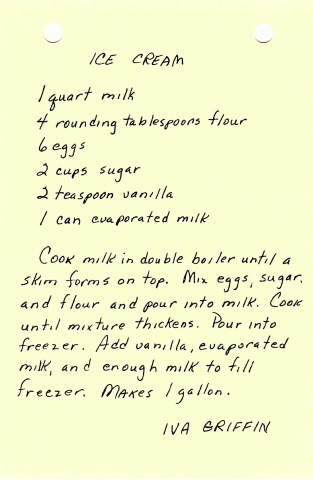 ICE CREAM
1 quart milk
4 rounding tablespoons flour
6 eggs
2 cups sugar
2 teaspoon vanilla
1 can evaporated milk
Cook milk in double boiler until a
skim forms on top. Mix eggs, sugar,
and flour and pour into milk. Cook
until mixture thickens. Pour into
freezer. Add vanilla, evaporated
milk, and enough milk to fill
freezer. Makes 1 gallon.
IVA GRIFFIN